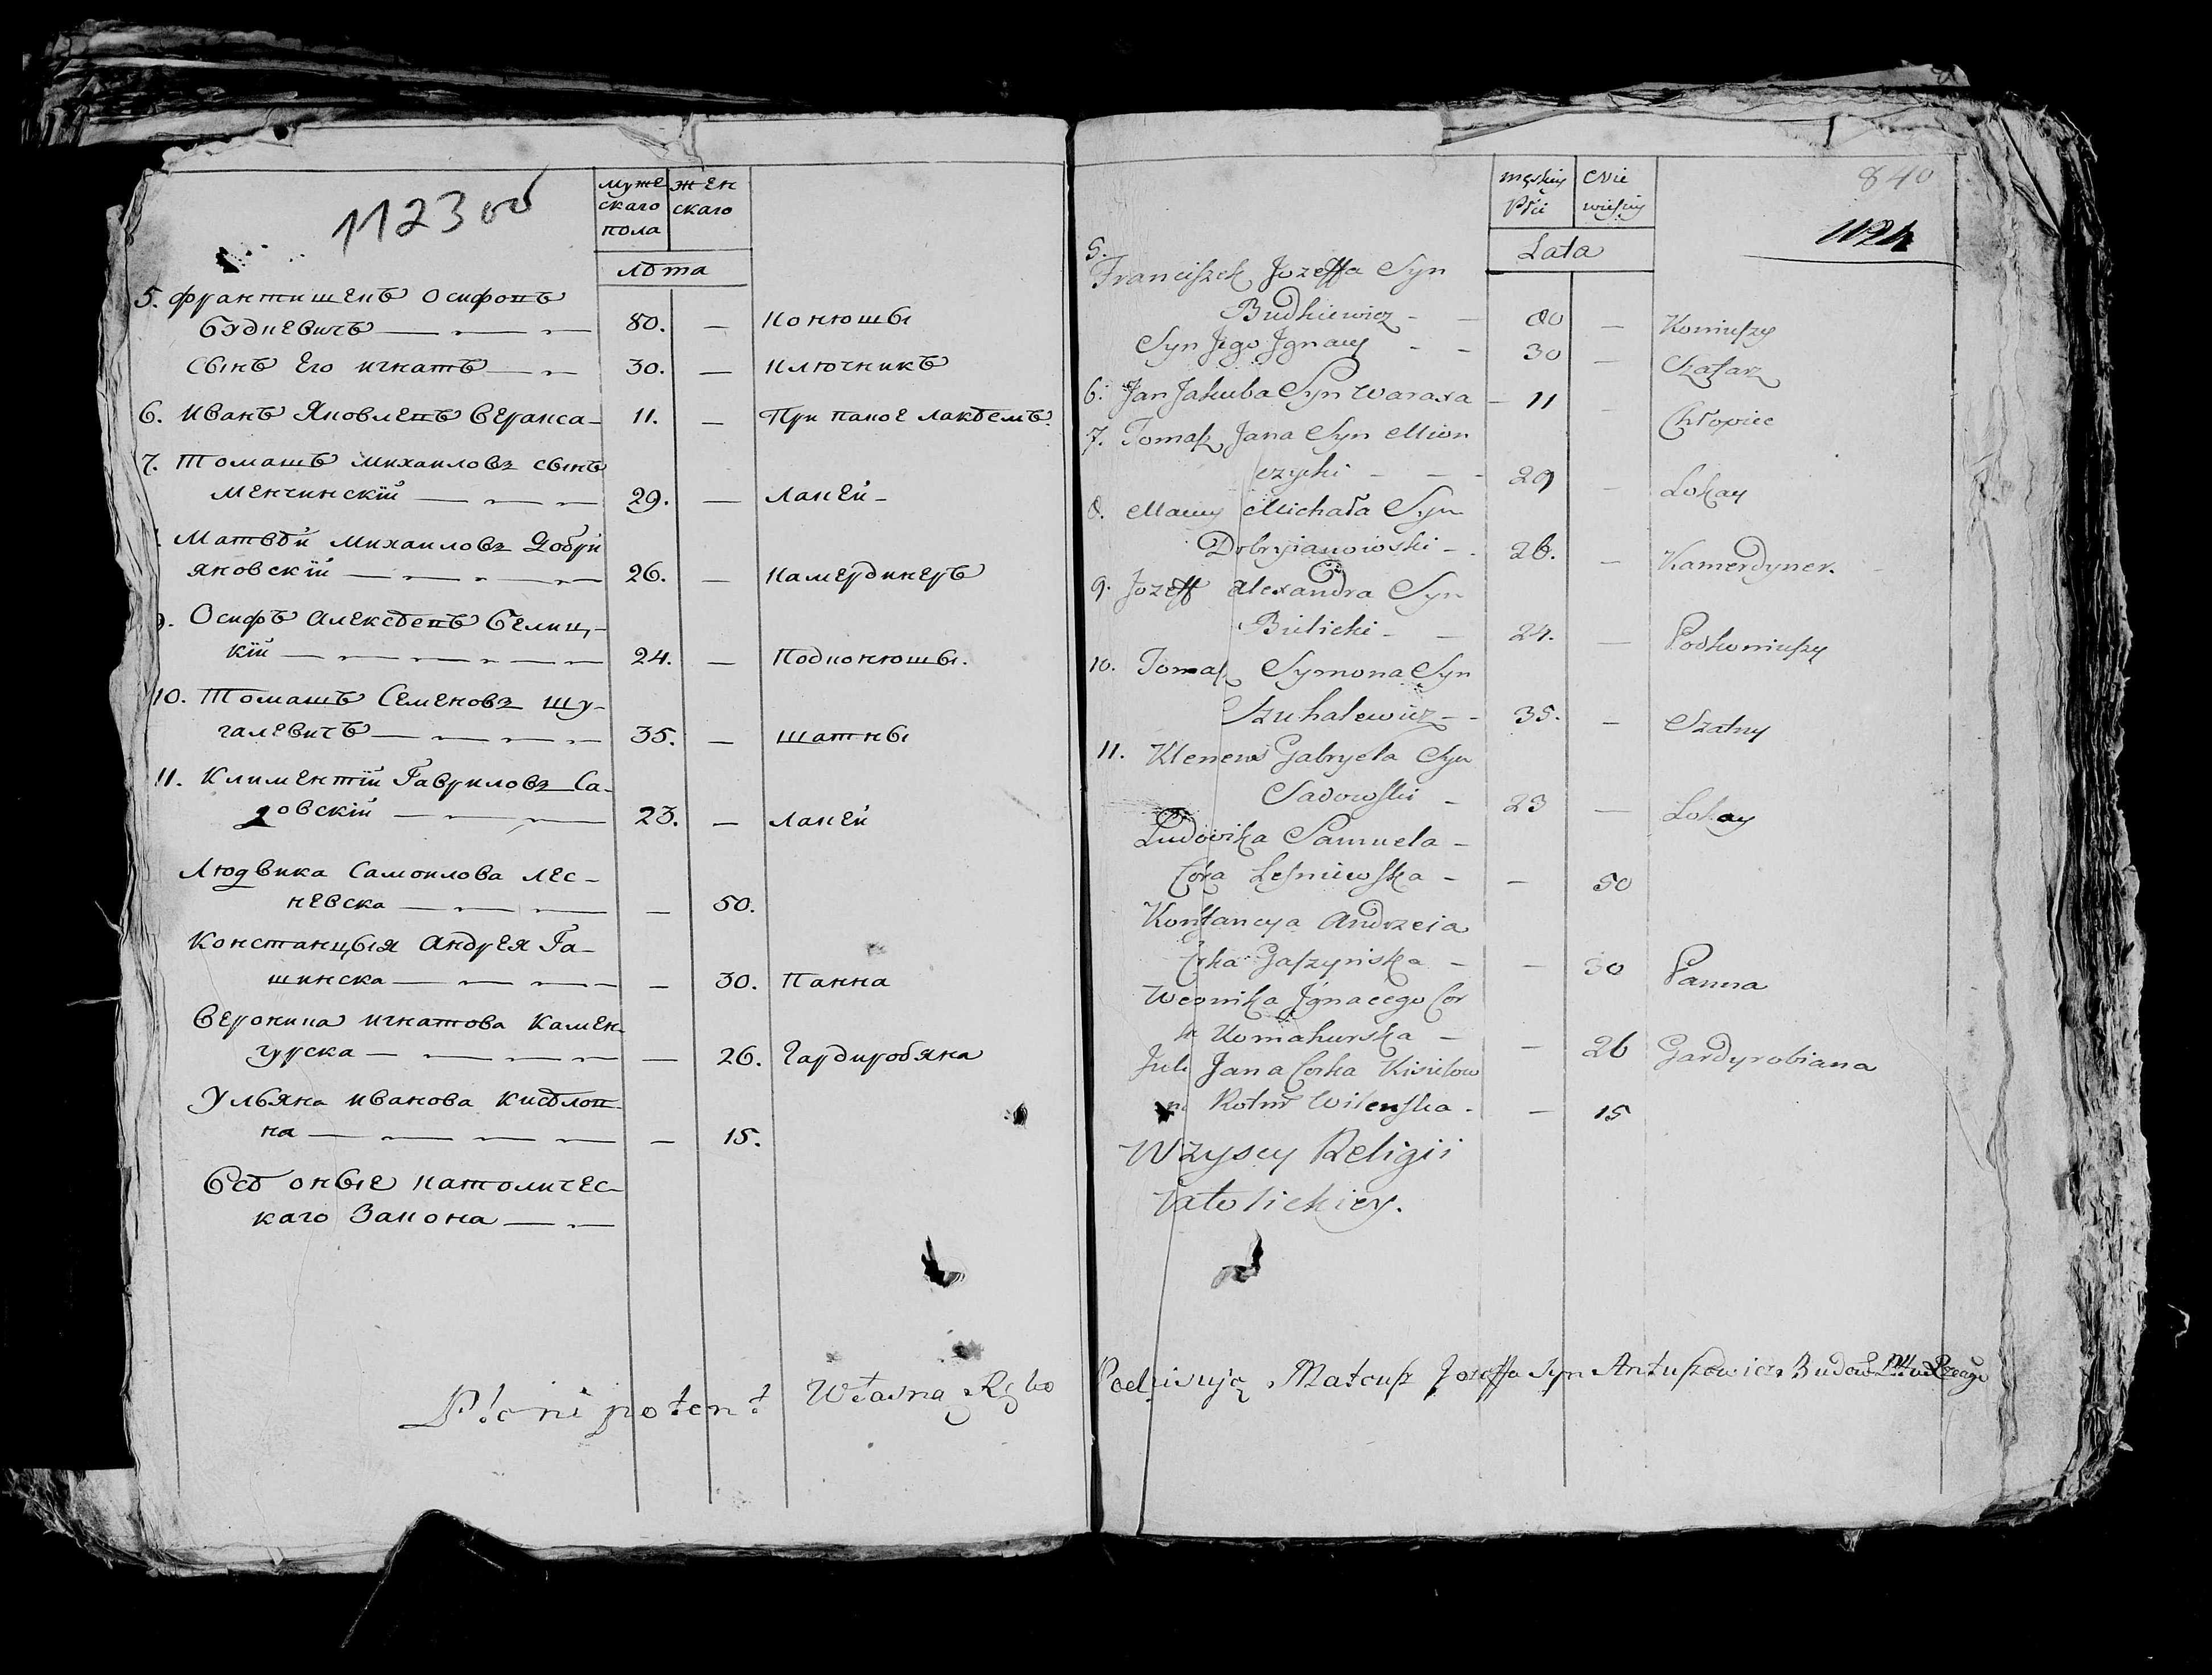 1123 об
муже
скаго
пола
жен
скаго
лѣта
5. Францишекъ Осифовъ
Будкевичъ — 80. — Конюшы
Сынъ Его Игнатъ — 30. — Ключникъ
6. Иванъ Яковлевъ Веракса — 11. —
7. Томашъ Михаиловъ сынъ
Менчинскій — 29. — Лакей —
Матвѣй Михаиловъ Добри
яновскій — 26. — Камердинеръ
9. Осифъ Алексѣевъ Белиц-
кій — 24. — Подконюшы.
10. Томашъ Семеновъ Шу-
галевичъ — 35. — шатны
11. Климентій Гавриловъ Са-
довскій — 23. — Лакей
Людвика Самоилова Лес-
невска — — 50.
Констанцыя Андрея Га-
шинска — — 30. Панна
Вероника Игнатова Камен-
гурска — — 26. Гардиробяна
Ульяна Иванова Кисѣлов-
на — — 15.
Всѣ оные католичес-
каго Закона —
Plenipotent Własną Ręko
840
męskiey
Płci
Nie
wiesciey
Lata
5.
Franciszek Jozeffa Syn
Budkiewicz - 80 — Koniuszy
Syn Jego Jgnacy - - 30 — Szafarz
6. Jan Jakuba Syn Waraxa - 11 - Chłopiec
7. Tomasz Jana Syn Mion
czycki - - - 29 — Lokay
8. Maciey Michała Syn
Dobryianowski - 26. — Kamerdyner.
9. Jozeff Alexandra Syn
Bielicki - - 24. — Podkoniuszy
10. Tomasz Symona Syn
Szuhalewicz - - 35. — Szatny
11. Klemens Gabryela Syn
Sadowski - 23 — Lokay
Ludowika Samuela -
Cora Leśniewska - — 50
Konstancya Andrzeia
Corka Gaszyńska - — 30 Panna
Weronika Jgnacego Cor
ka - — 26 Gardyrobiana
Jana Corka Kisielow
na - — 15
Wszyscy Religii
Katolickiey.
Podpisuję Mateusz Jozeffa Syn Antuszewicz